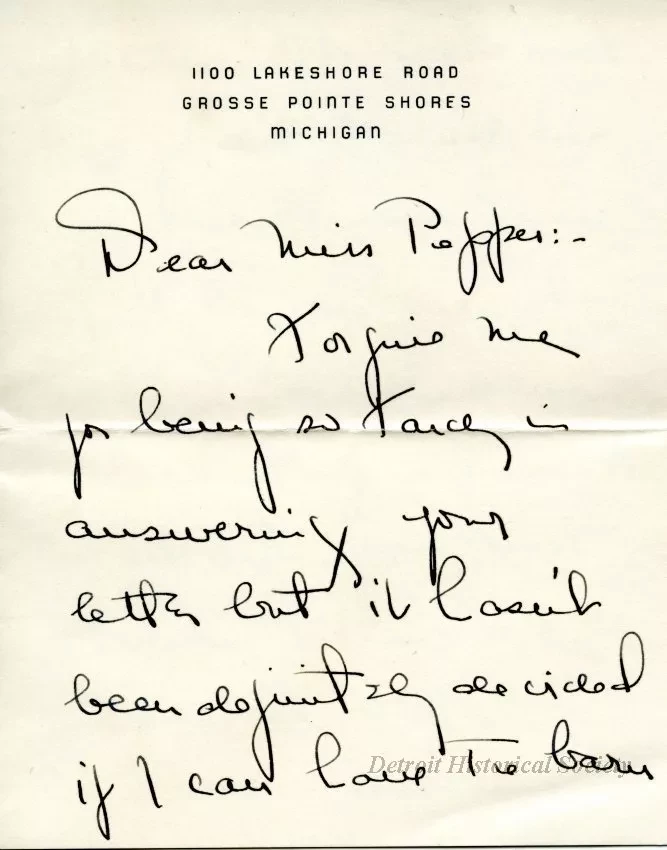 1100 LAKESHORE ROAD
GROSSE POINTE SHORES
MICHIGAN
Dear Miss Pepper:-
Forgive me
for being so tardy in
answering your
letter but it hasn't
been definitely decided
if I can have the barn
Detroit Historical Society